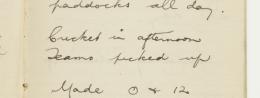 paddocks all day.
Cricket in afternoon
Teams picked up
Made O & 12